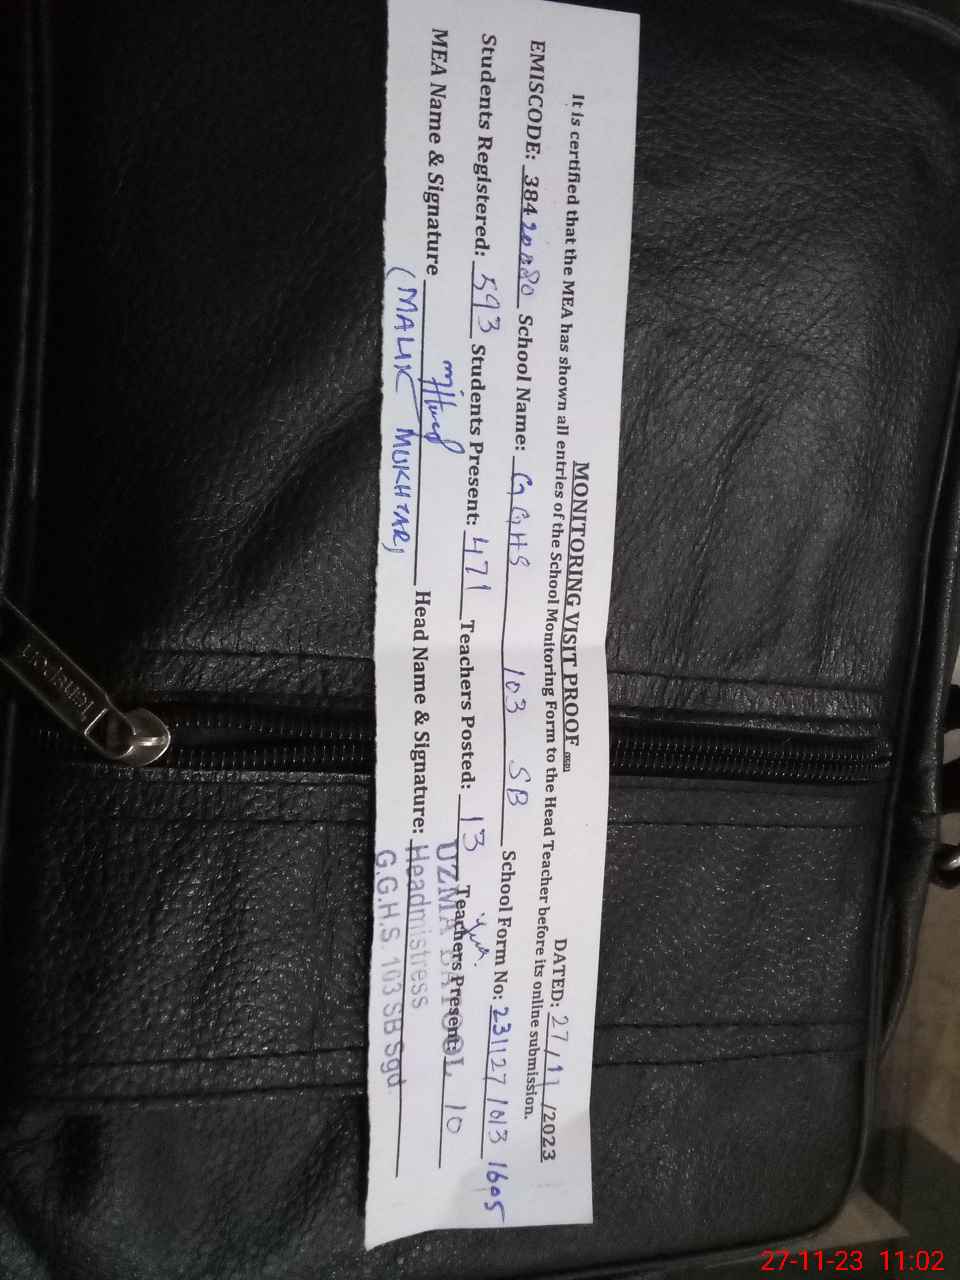 MONITORING VISIT PROOF
DATED: 27/11/2023
It is certified that the MEA has shown all entries of the School Monitoring Form to the Head Teacher before its online submission.
EMISCODE: 38420080 School Name: GGHS 103 SB School Form No: 231127 1013 1605
Students Registered: 593 Students Present: 471 Teachers Posted: 13 Teachers Present: 10
MEA Name & Signature Head Name & Signature:
(MALIK MUKHTAR)
UZMA BATOOL
Headmistress
G.G.H.S. 103 SB Sgd
27-11-23 11:02